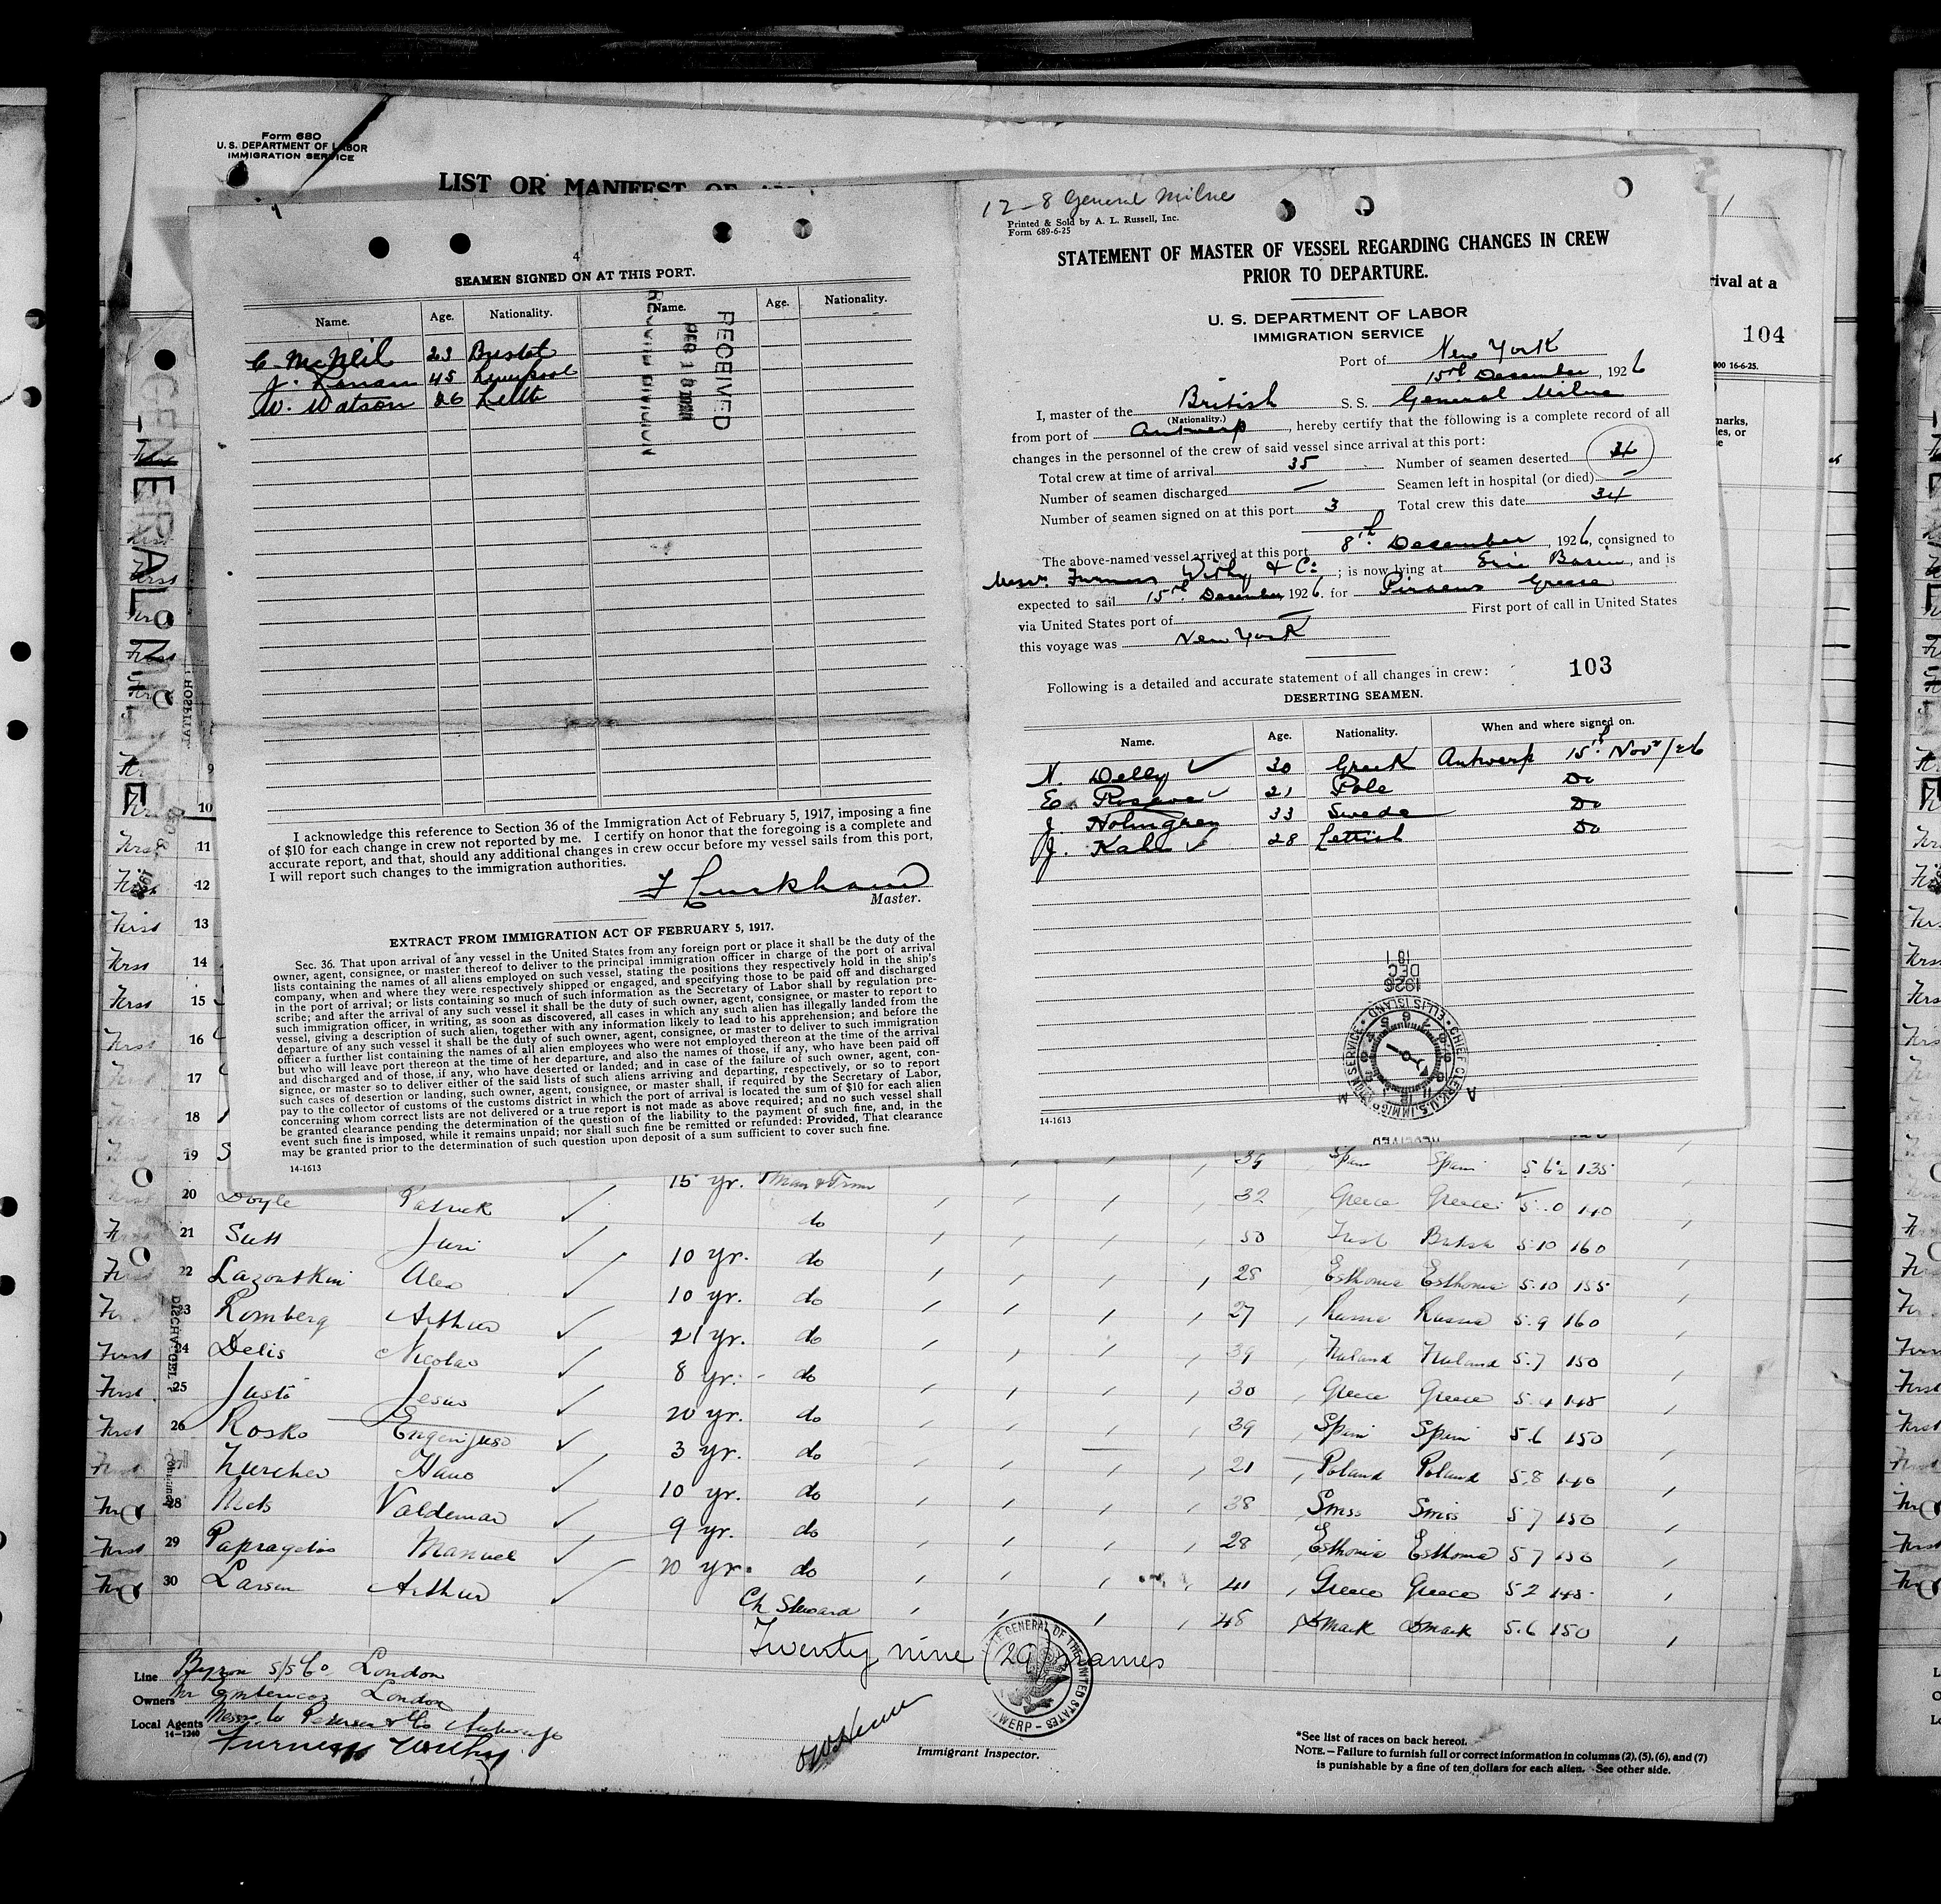 Form 680
U. S. DEPARTMENT OF LABOR
IMMIGRATION SERVICE
LIST OR MANIFEST OF
4
SEAMEN SIGNED ON AT THIS PORT.
Name. Age. Nationality. Name. Age. Nationality.
C. McNeil 23 Bristol
J. 45 Liverpool
W. Watson 26 Leith
RECEIVED
DEC 18 1926
REVIEW DIVISION
I acknowledge this reference to Section 36 of the Immigration Act of February 5, 1917, imposing a fine
of $10 for each change in crew not reported by me. I certify on honor that the foregoing is a complete and
accurate report, and that, should any additional changes in crew occur before my vessel sails from this port,
I will report such changes to the immigration authorities.
Master.
EXTRACT FROM IMMIGRATION ACT OF FEBRUARY 5, 1917.
Sec. 36. That upon arrival of any vessel in the United States from any foreign port or place it shall be the duty of the
owner, agent, consignee, or master thereof to deliver to the principal immigration officer in charge of the port of arrival
lists containing the names of all aliens employed on such vessel, stating the positions they respectively hold in the ship's
company, when and where they were respectively shipped or engaged, and specifying those to be paid off and discharged
in the port of arrival; or lists containing so much of such information as the Secretary of Labor shall by regulation pre-
scribe; and after the arrival of any such vessel it shall be the duty of such owner, agent, consignee, or master to report to
such immigration officer, in writing, as soon as discovered, all cases in which any such alien has illegally landed from the
vessel, giving a description of such alien, together with any information likely to lead to his apprehension; and before the
departure of any such vessel it shall be the duty of such owner, agent, consignee, or master to deliver to such immigration
officer a further list containing the names of all alien employees who were not employed thereon at the time of the arrival
but who will leave port thereon at the time of her departure, and also the names of those, if any, who have been paid off
and discharged and of those, if any, who have deserted or landed; and in case of the failure of such owner, agent, con-
signee, or master so to deliver either of the said lists of such aliens arriving and departing, respectively, or so to report
such cases of desertion or landing, such owner, agent, consignee, or master shall, if required by the Secretary of Labor,
pay to the collector of customs of the customs district in which the port of arrival is located the sum of $10 for each alien
concerning whom correct lists are not delivered or a true report is not made as above required; and no such vessel shall
be granted clearance pending the determination of the question of the liability to the payment of such fine, and, in the
event such fine is imposed, while it remains unpaid; nor shall such fine be remitted or refunded: Provided, That clearance
may be granted prior to the determination of such question upon deposit of a sum sufficient to cover such fine.
14-1613
12-8 General Milne
Printed & Sold by A. L. Russell, Inc.
Form 689-6-25
STATEMENT OF MASTER OF VESSEL REGARDING CHANGES IN CREW
PRIOR TO DEPARTURE.
U. S. DEPARTMENT OF LABOR
IMMIGRATION SERVICE
Port of New York
15th December, 1926
I, master of the British S. S. General Milne
(Nationality.)
from port of Antwerp, hereby certify that the following is a complete record of all
changes in the personnel of the crew of said vessel since arrival at this port:
Total crew at time of arrival 35 Number of seamen deserted 4
Number of seamen discharged — Seamen left in hospital (or died) —
Number of seamen signed on at this port 3 Total crew this date 34
The above-named vessel arrived at this port 8th December, 1926, consigned to
Messrs. Furness Withy & Co; is now lying at Erie Basin, and is
expected to sail 15th December, 1926. for Piraeus Greece
via United States port of — First port of call in United States
this voyage was New York
Following is a detailed and accurate statement of all changes in crew: 103
DESERTING SEAMEN.
Name. Age. Nationality. When and where signed on.
N. Delly 30 Greek Antwerp 15th Novr/26
E. 21 Pole Do
J. Holmgren 33 Swede Do
J. Kall 28 Lettish Do
1926
DEC
18 1
CHIEF CLERK, U.S. IMMIGRATION SERVICE • ELLIS ISLAND •
14-1613
rival at a
104
000 16-6-25.
marks,
les, or
GENERAL MILNE
First 9
First 10
First 11
First 12
First 13
First 14
First 15
First 16
First 17
First 18
First 19 39 Spain Spain 5 6½ 135
First 20 Doyle Patrick 15 yr. do 32 Greece Greece 5.0 140
First 21 Sutt Juri 10 yr. do 50 Irish British 5.10 160
First 22 Alex 10 yr. do 28 Esthonia Esthonia 5.10 155
First 23 Romberg Arthur 21 yr. do 27 Russia Russia 5.9 160
First 24 Delis Nicolas 8 yr. do 39 5.7 150
First 25 Justo Jesus 20 yr. do 30 Greece Greece 5.4 145
First 26 Rosko 3 yr. do 39 Spain Spain 5.6 150
First 27 Zurcher Hans 10 yr. do 21 Poland Poland 5.8 140
First 28 Valdemar 9 yr. do 38 Swiss Swiss 5 7 150
First 29 Manuel 20 yr. do 28 Esthonia Esthonia 5 7 150
First 30 Larsen Arthur Ch Steward 41 Greece Greece 5.2 145
48 Dmark Dmark 5.6 150
Twenty nine (29) names
Line Byron S/S Co. London
Owners London
Local Agents Messrs.
14-1240
Furness Withy
Immigrant Inspector.
*See list of races on back hereof.
NOTE.—Failure to furnish full or correct information in columns (2), (5), (6), and (7)
is punishable by a fine of ten dollars for each alien. See other side.